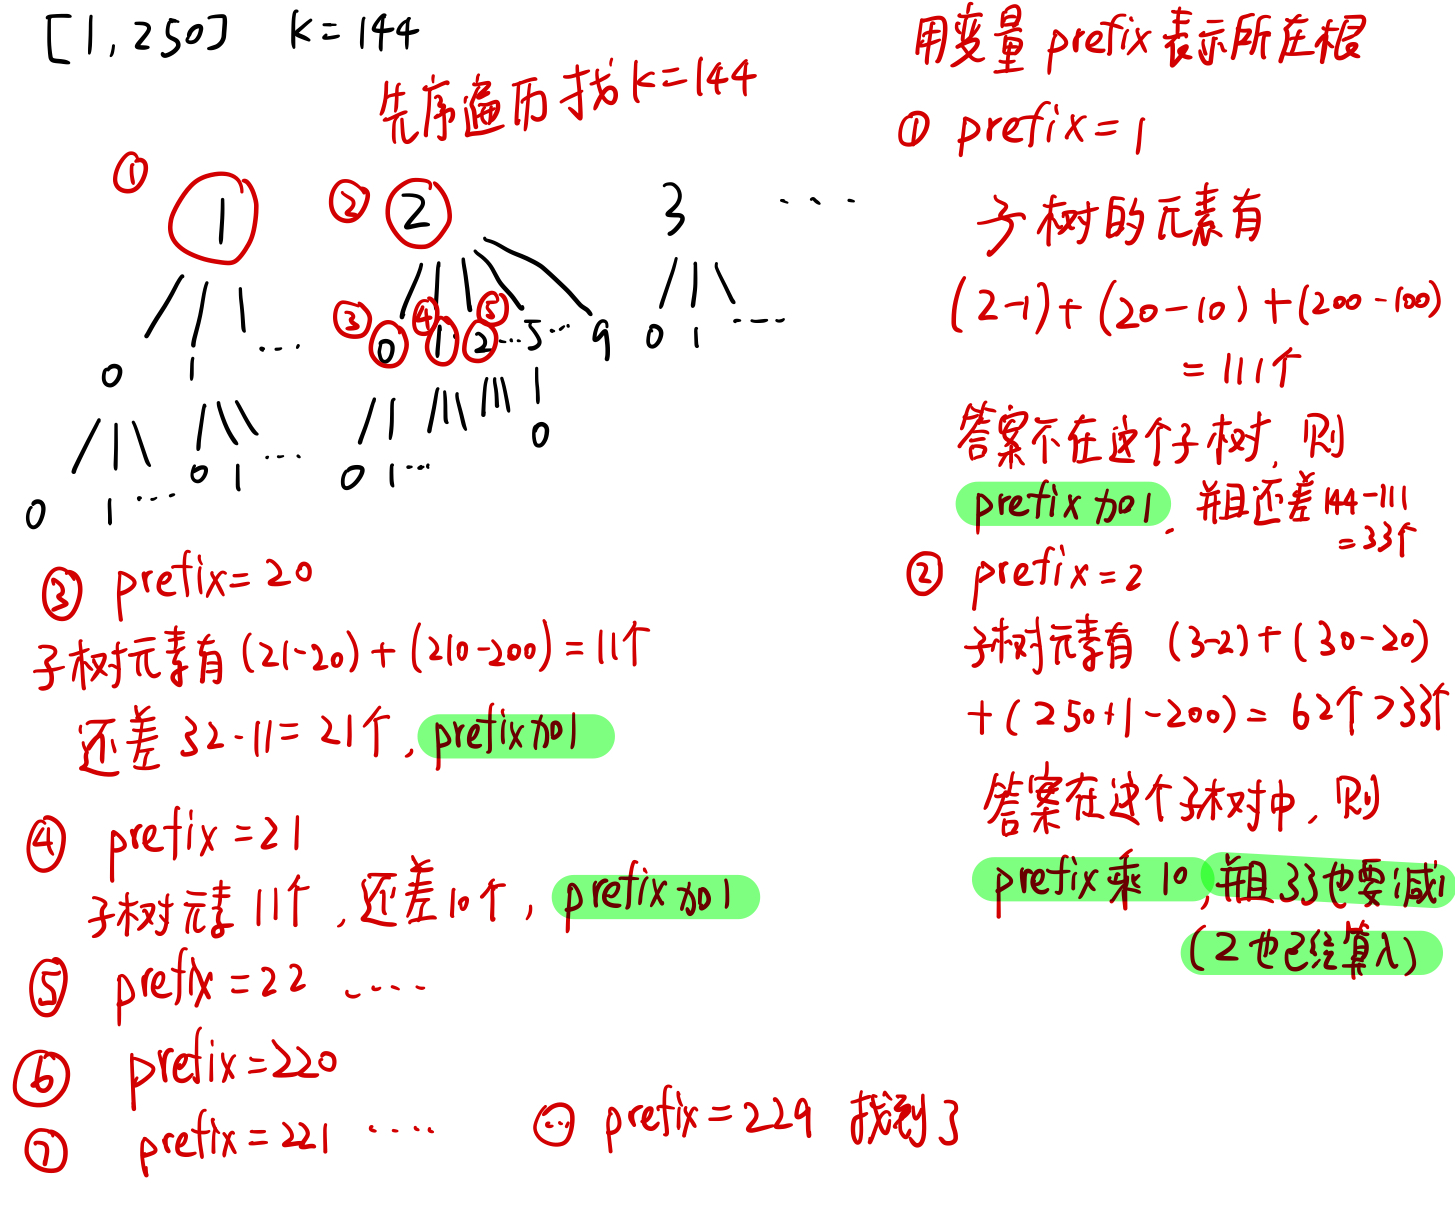 [1,250] k=144
先序遍历找k=144
① ② 3 ····
1 2
③ ④ ⑤
0 1 ··· 0 1 2 ··· 5 ··· 9 0 1 ····
0 1 ··· 0 1 ··· 0 1 ··· 0
用变量 prefix 表示所在根
① prefix=1
子树的元素有
(2-1)+(20-10)+(200-100)
=111个
答案不在这个子树,则
prefix加1,并且还差144-111
=33个
② prefix=2
子树元素有 (3-2)+(30-20)
+(250+1-200)=62个>33个
答案在这个子树中,则
prefix乘10,并且33也要减1
(2也已经算入)
③ prefix=20
子树元素有(21-20)+(210-200)=11个
还差 32-11=21个,prefix加1
④ prefix=21
子树元素 11个,还差10个,prefix加1
⑤ prefix=22 ····
⑥ prefix=220
⑦ prefix=221 ····
prefix=229 找到了